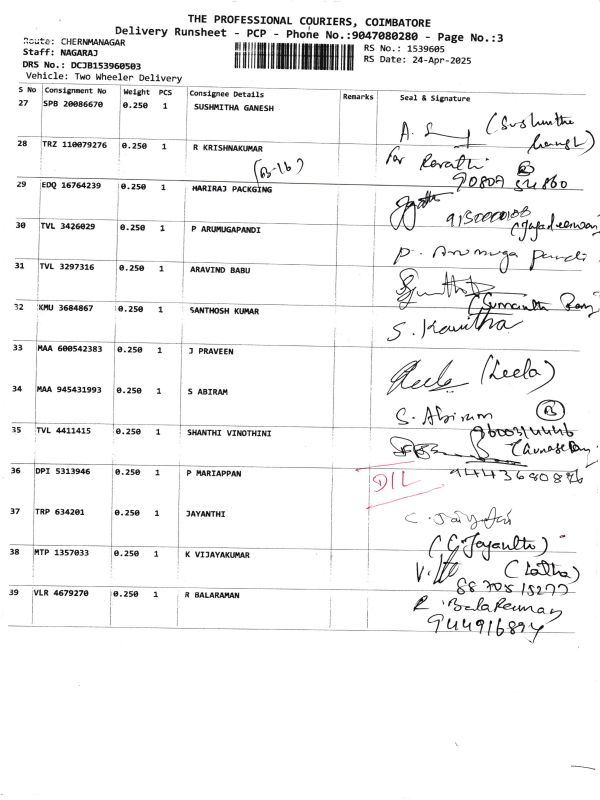 THE PROFESSIONAL COURIERS, COIMBATORE
Delivery Runsheet - PCP - Phone No.:9047080280 - Page No.:3
Route: CHERNMANAGAR
RS No.: 1539605
Staff: NAGARAJ
RS Date: 24-Apr-2025
DRS No.: DCJB153960503
Vehicle: Two Wheeler Delivery
S No Consignment No Weight PCS Consignee Details Remarks Seal & Signature
27 SPB 20086670 0.250 1 SUSHMITHA GANESH
A.
(Sushmitha
28 TRZ 110079276 0.250 1 R KRISHNAKUMAR
for Revathi
(B-16)
90807 54860
29 EDQ 16764239 0.250 1 HARIRAJ PACKGING
9150000188
30 TVL 3426029 0.250 1 P ARUMUGAPANDI
(Jagadeeswan)
P. Arumuga pandi
31 TVL 3297316 0.250 1 ARAVIND BABU
32 KMU 3684867 0.250 1 SANTHOSH KUMAR
S. Kavitha
33 MAA 600542383 0.250 1 J PRAVEEN
(Leela)
34 MAA 945431993 0.250 1 S ABIRAM
S. Abiram
35 TVL 4411415 0.250 1 SHANTHI VINOTHINI
36 DPI 5313946 0.250 1 P MARIAPPAN
D/L
37 TRP 634201 0.250 1 JAYANTHI
(G. Jayanthi)
38 MTP 1357033 0.250 1 K VIJAYAKUMAR
(Latha)
8870515277
39 VLR 4679270 0.250 1 R BALARAMAN
R. BalaRaman
944916894